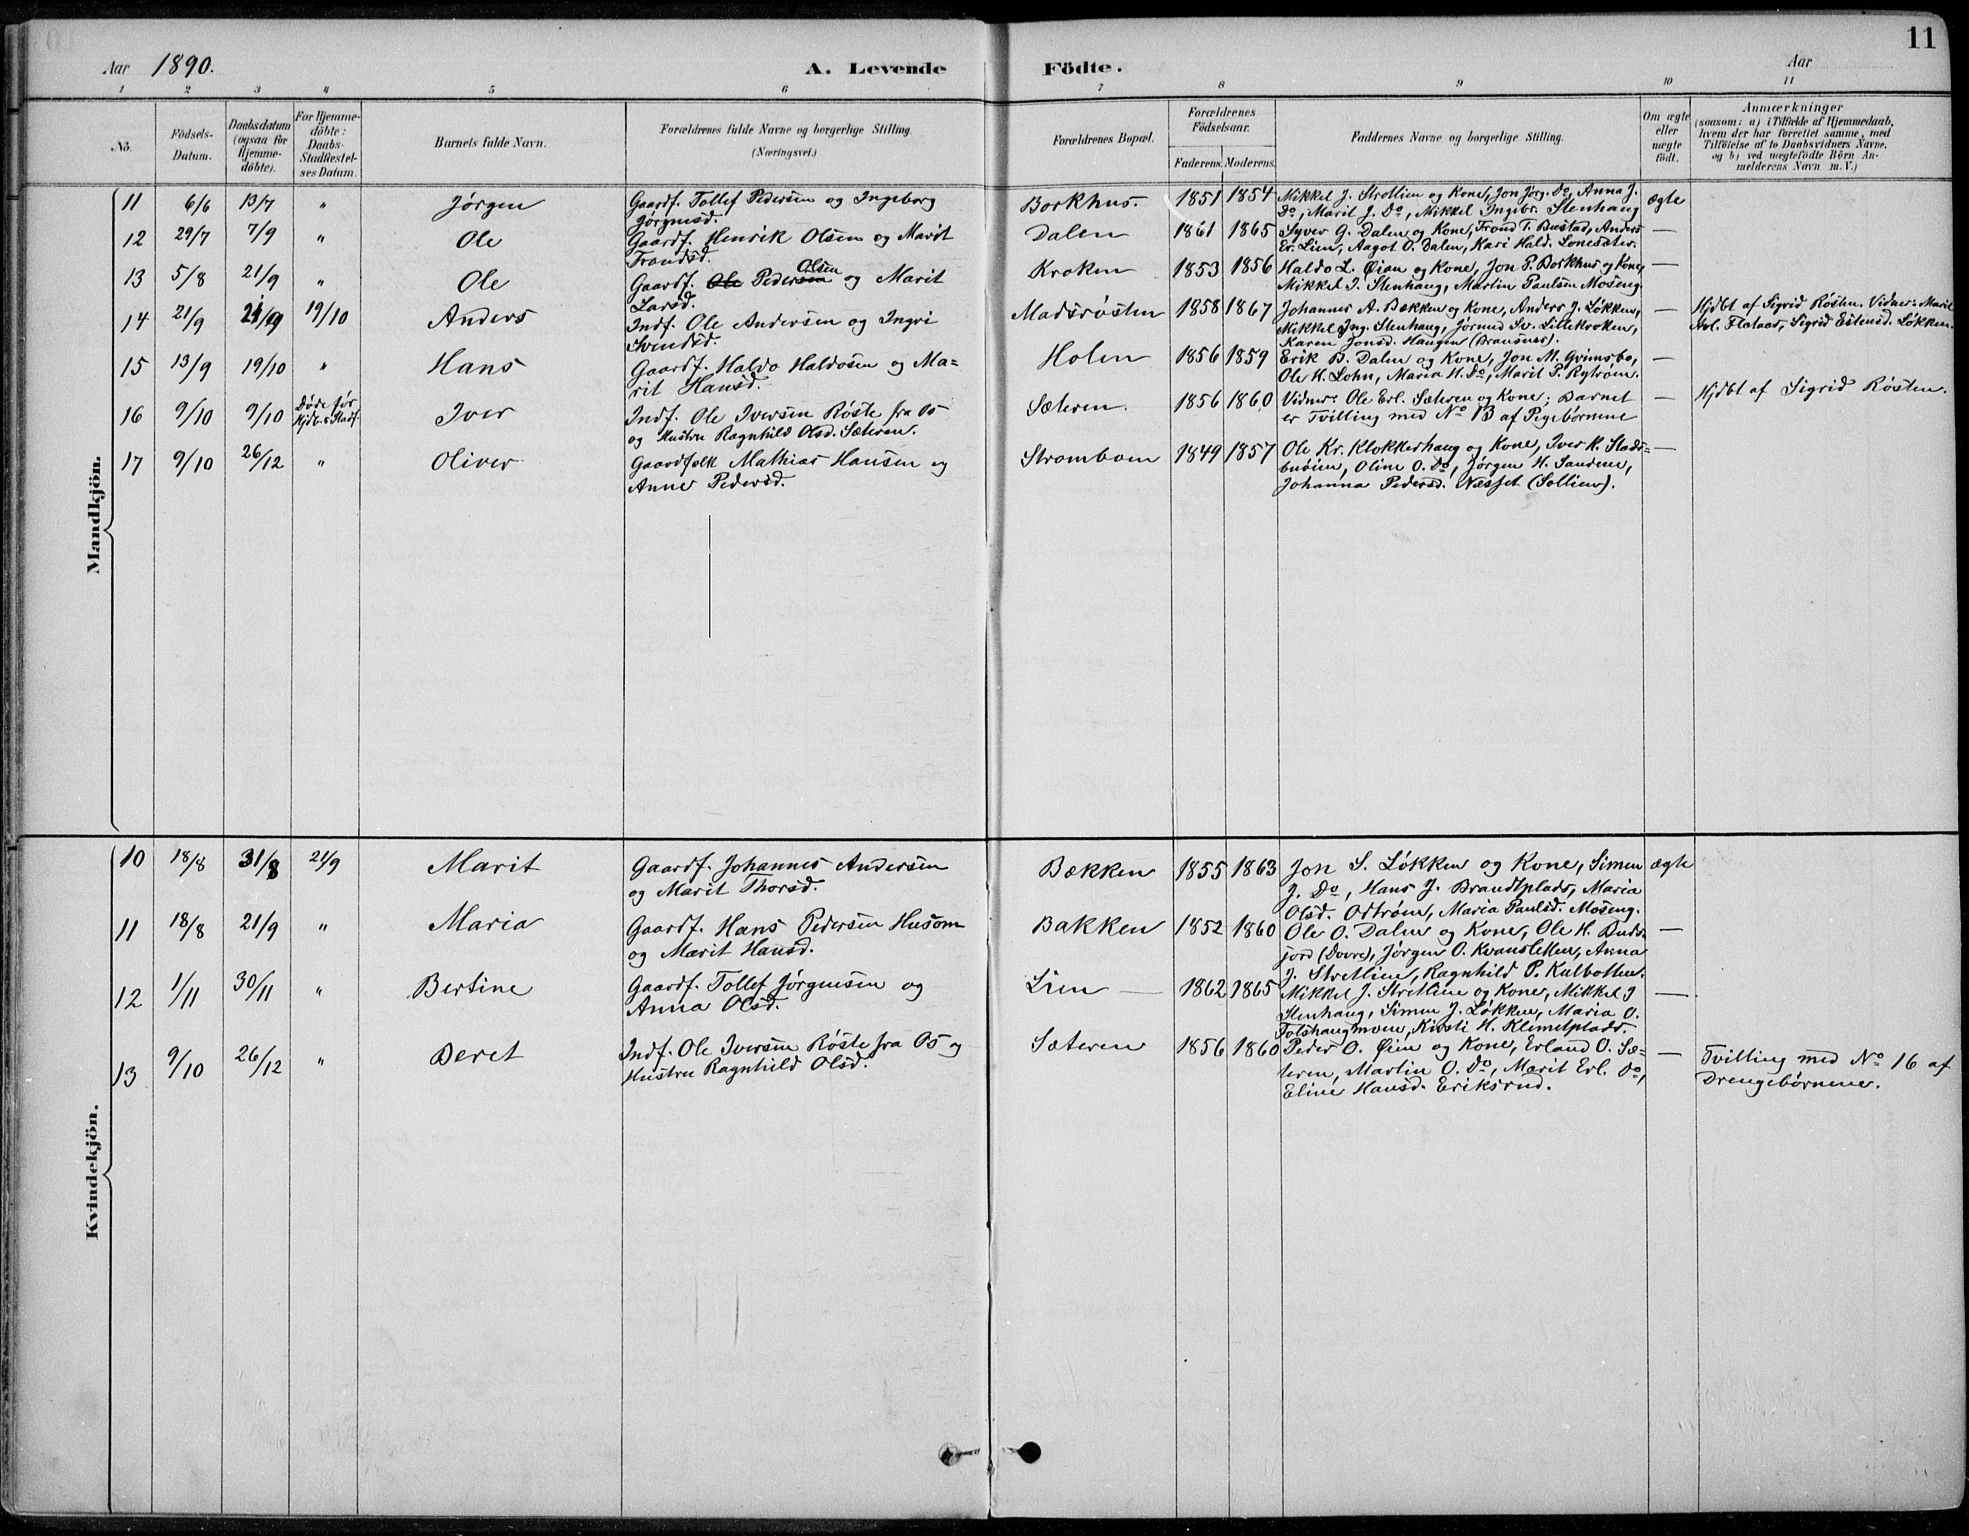 11
Aar 1890. A. Levende Födte. Aar
1 2 3 4 5 6 7 8 9 10 11
No. Födsels-Datum. Daabsdatum (ogsaa for Hjemmedöbte). For Hjemmedöbte: Daabs-Stadfæstelses Datum. Barnets fulde Navn. Forældrenes fulde Navne og borgerlige Stilling. (Næringsvei.) Forældrenes Bopæl. Forældrenes Födselsaar. Faderens. Moderens. Faddernes Navne og borgerlige Stilling. Om ægte eller uægte födt. Anmærkninger (saasom: a) i Tilfælde af Hjemmedaab, hvem der har forrettet samme, med Tilföielse af to Daabsvidners Navne, og b) ved uægtefödte Börn Anmelderens Navn m. V.)
Mandkjön.
11 6/6 13/7 " Jørgen Gaardf. Tollef Pedersen og Ingeborg Borkhus 1851 1854 Mikkel J. Strætlien og Kone, Jon Jørg. Do, Anna J. ægte
Jørgensd. Do, Marit J. Do, Mikkel Ingebr. Stenhaug
12 29/7 7/9 " Ole Gaardf. Henrik Olsen og Marit Dalen 1861 1865 Syver G. Dalen og Kone, Trond T. Bustad, Anders —
Trondsd. Er. Lien, Aagot O. Dalen, Kari Hald. Lonesæter.
13 5/8 21/9 " Ole Gaardf. Ole Pedersen Olsen og Marit Kroken 1853 1856 Haldo L. Øian og Kone, Jon P. Borkhus og Kone, —
Larsd. Mikkel I. Stenhaug, Martin Paulsen Moseng
14 21/9 21/9 19/10 Anders Indf. Ole Andersen og Ingri Madsrøsten 1858 1867 Johannes A. Bekken og Kone, Anders J. Løkken, — Hjdbt af Sigrid Røsten. Vidner: Marit
Svendsd. Mikkel Ing. Stenhaug, Jørund Sv. Lillekroken, Flataas, Sigrid Estensd. Løkken.
Karen Jonsd. Haugen (Bransnes).
15 13/9 19/10 " Hans Gaardf. Haldo Haldosen og Ma- Holen 1856 1859 Erik B. Dalen og Kone, Jon M. Grimsbo, —
rit Hansd. Ole H. Lohn, Maria H. Do, Marit P. Rytrøen.
16 9/10 9/10 Døde før Hjdb. s Stadf. Iver Indf. Ole Iversen Røste fra Os Sæteren. 1856 1860 Vidner: Ole Erl. Sæteren og Kone; Barnet — Hjdbt af Sigrid Røsten.
og Hustru Ragnhild Olsd. Sæteren. er Tvilling med No 13 af Pigebørnene
17 9/10 26/12 " Oliver Gaardfolk Mathias Hansen og Strømboen 1849 1857 Ole Kr. Klokkerhaug og Kone, Iver K. Stads- —
Anne Pedersd. buøien, Oline O. Do, Jørgen H. Sandeie,
Johanna Pedersd. Næsset (Sollien).
Kvindekjön.
10 18/8 31/8 21/9 Marit Gaardf. Johannes Andersen Bækken 1855 1863 Jon S. Løkken og Kone, Simen ægte
og Marit Thorsd. J. Do, Hans J. Brandtplads, Maria
Olsd. Odtrøen, Maria Paulsd. Moseng.
11 18/8 21/9 " Maria Gaardf. Hans Pedersen Husom Bakken 1852 1860 Ole O. Dalen og Kone, Ole H. Buds- —
og Marit Hansd. jord (Dovre), Jørgen O. Kvansletten, Anna
J. Stretlien, Ragnhild P. Kulbotten.
12 1/11 30/11 " Bertine Gaardf. Tollef Jørgensen og Lien — 1862 1865 Mikkel J. Stretlien og Kone, Mikkel I —
Anna Olsd. Stenhaug, Simen J. Løkken, Maria O.
Tolshaugmoen, Kirsti H. Klemetplads.
13 9/10 26/12 " Beret Indf. Ole Iversen Røste fra Os og Sæteren 1856 1860 Peder O. Øien og Kone, Erland O. Sæ- — Tvilling med No 16 af
Hustru Ragnhild Olsd. teren, Martin O. Do, Marit Erl. Do, Drengebørnene.
Eline Hansd. Eriksrud.